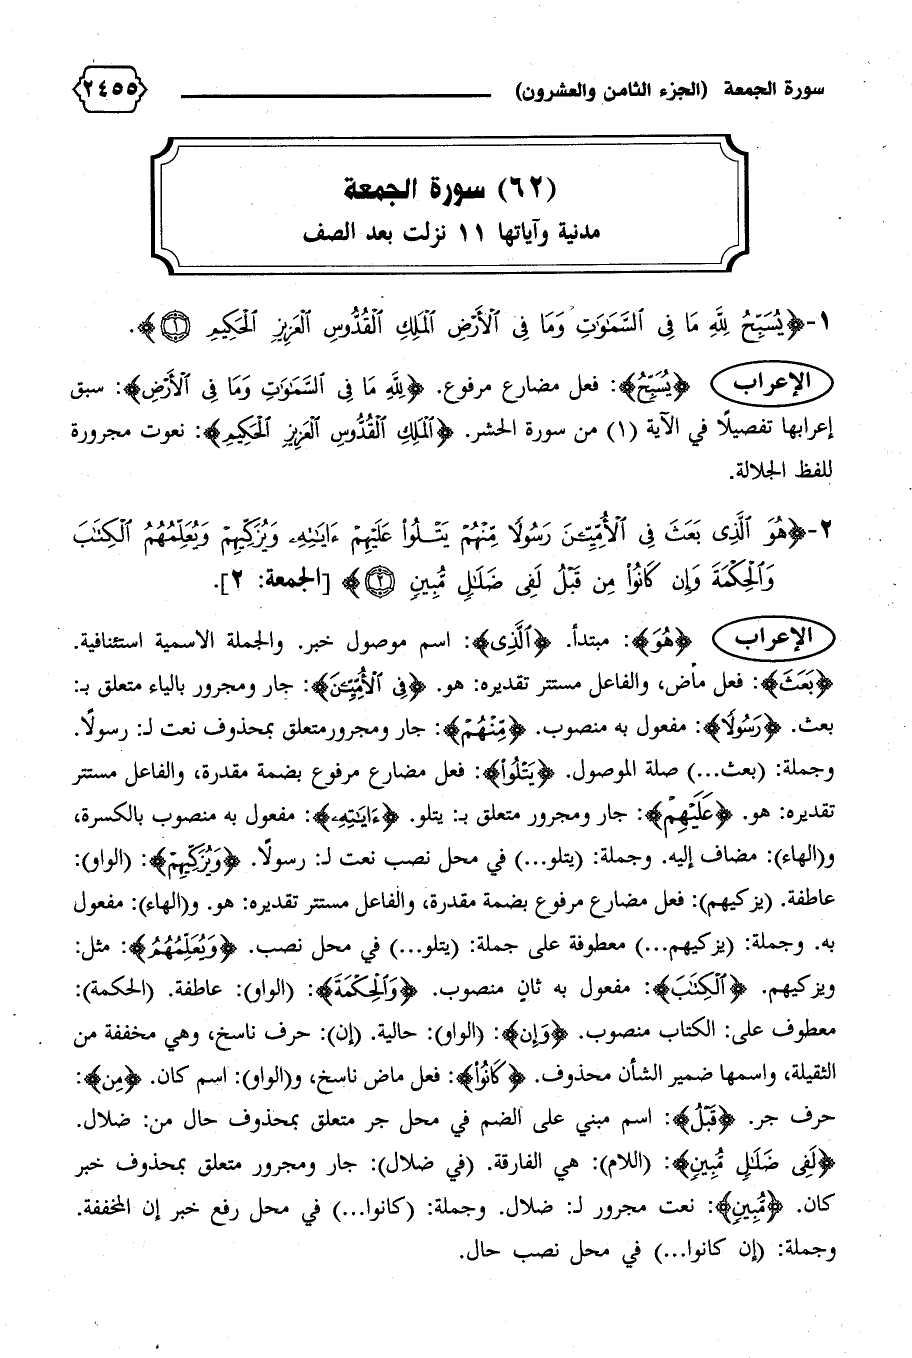 سورة الجمعة (الجزء الثامن والعشرون) ٢٤٥٥
(٦٢) سورة الجمعة
مدنية وآياتها ١١ نزلت بعد الصف
١- ﴿يُسَبِّحُ لِلَّهِ مَا فِي السَّمَٰوَٰتِ وَمَا فِي الْأَرْضِ الْمَلِكِ الْقُدُّوسِ الْعَزِيزِ الْحَكِيمِ ۝١﴾.
الإعراب ﴿يُسَبِّحُ﴾: فعل مضارع مرفوع. ﴿لِلَّهِ مَا فِي السَّمَٰوَٰتِ وَمَا فِي الْأَرْضِ﴾: سبق
إعرابها تفصيلًا في الآية (١) من سورة الحشر. ﴿الْمَلِكِ الْقُدُّوسِ الْعَزِيزِ الْحَكِيمِ﴾: نعوت مجرورة
للفظ الجلالة.
٢- ﴿هُوَ الَّذِي بَعَثَ فِي الْأُمِّيِّـۧنَ رَسُولًا مِّنْهُمْ يَتْلُوا۟ عَلَيْهِمْ ءَايَٰتِهِۦ وَيُزَكِّيهِمْ وَيُعَلِّمُهُمُ الْكِتَٰبَ
وَالْحِكْمَةَ وَإِن كَانُوا۟ مِن قَبْلُ لَفِي ضَلَٰلٍ مُّبِينٍ ۝٢﴾ [الجمعة: ٢].
الإعراب ﴿هُوَ﴾: مبتدأ. ﴿الَّذِي﴾: اسم موصول خبر. والجملة الاسمية استئنافية.
﴿بَعَثَ﴾: فعل ماض، والفاعل مستتر تقديره: هو. ﴿فِي الْأُمِّيِّـۧنَ﴾: جار ومجرور بالياء متعلق بـ:
بعث. ﴿رَسُولًا﴾: مفعول به منصوب. ﴿مِّنْهُمْ﴾: جار ومجرورمتعلق بمحذوف نعت لـ: رسولًا.
وجملة: (بعث...) صلة الموصول. ﴿يَتْلُوا۟﴾: فعل مضارع مرفوع بضمة مقدرة، والفاعل مستتر
تقديره: هو. ﴿عَلَيْهِمْ﴾: جار ومجرور متعلق بـ: يتلو. ﴿ءَايَٰتِهِۦ﴾: مفعول به منصوب بالكسرة،
و(الهاء): مضاف إليه. وجملة: (يتلو...) في محل نصب نعت لـ: رسولًا. ﴿وَيُزَكِّيهِمْ﴾: (الواو):
عاطفة. (يزكيهم): فعل مضارع مرفوع بضمة مقدرة، والفاعل مستتر تقديره: هو. و(الهاء): مفعول
به. وجملة: (يزكيهم...) معطوفة على جملة: (يتلو...) في محل نصب. ﴿وَيُعَلِّمُهُمُ﴾: مثل:
ويزكيهم. ﴿الْكِتَٰبَ﴾: مفعول به ثانٍ منصوب. ﴿وَالْحِكْمَةَ﴾: (الواو): عاطفة. (الحكمة):
معطوف على: الكتاب منصوب. ﴿وَإِن﴾: (الواو): حالية. (إن): حرف ناسخ، وهي مخففة من
الثقيلة، واسمها ضمير الشأن محذوف. ﴿كَانُوا۟﴾: فعل ماض ناسخ، و(الواو): اسم كان. ﴿مِن﴾:
حرف جر. ﴿قَبْلُ﴾: اسم مبني على الضم في محل جر متعلق بمحذوف حال من: ضلال.
﴿لَفِي ضَلَٰلٍ مُّبِينٍ﴾: (اللام): هي الفارقة. (في ضلال): جار ومجرور متعلق بمحذوف خبر
كان. ﴿مُّبِينٍ﴾: نعت مجرور لـ: ضلال. وجملة: (كانوا...) في محل رفع خبر إن المخففة.
وجملة: (إن كانوا...) في محل نصب حال.